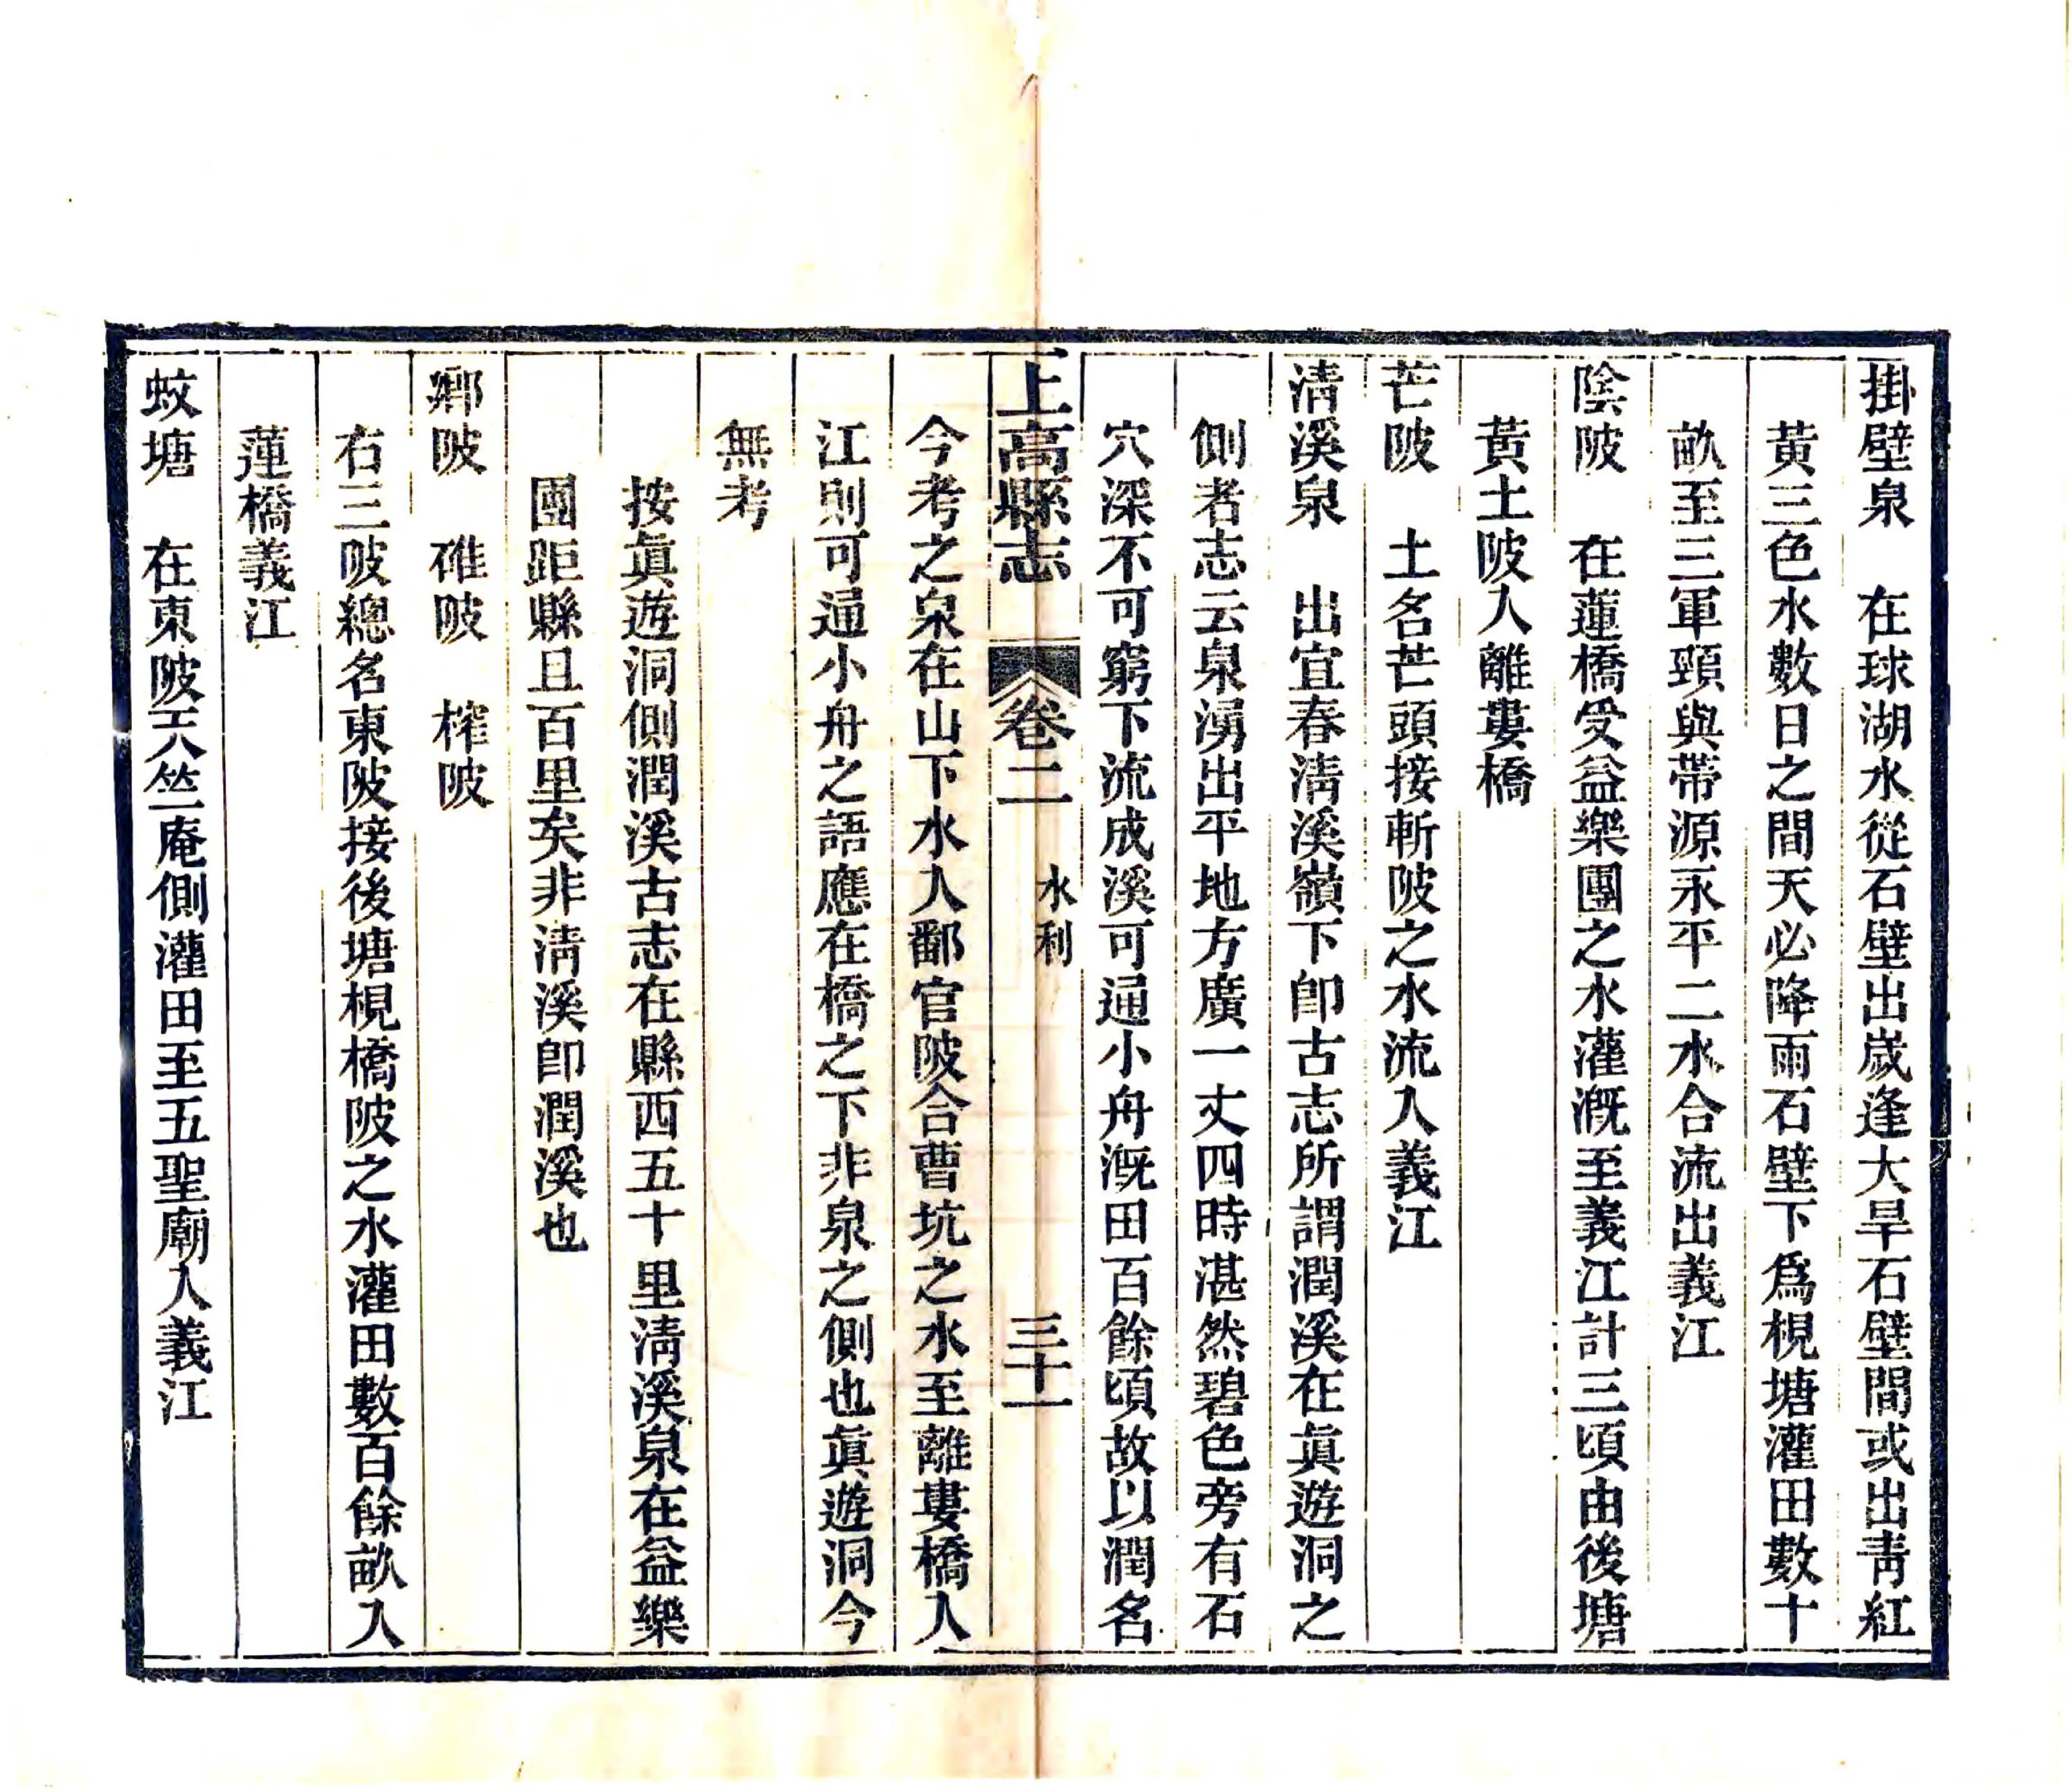 掛壁泉　在球湖水從石壁出歲逢大旱石壁間或出靑紅
黃三色水數日之間天必降雨石壁下爲梘塘灌田數十
畝至三軍頸與帶源永平二水合流出義江
陰陂　在蓮橋受益樂團之水灌溉至義江計三頃由後塘
黃土陂人離婁橋
芒陂　土名芒頭接斬陂之水流入義江
淸溪泉　出宜春淸溪嶺下卽古志所謂潤溪在眞遊洞之
側者志云泉湧出平地方廣一丈四時湛然碧色旁有石
穴深不可窮下流成溪可通小舟溉田百餘頃故以潤名
上高縣志　卷二　水利　三十一
今考之泉在山下水入鄱官陂合曹坑之水至離婁橋入
江則可通小舟之語應在橋之下非泉之側也眞遊洞今
無考
按眞遊洞側潤溪古志在縣西五十里淸溪泉在益樂
團距縣且百里矣非淸溪卽潤溪也
鄉陂　碓陂　榨陂
右三陂總名東陂接後塘梘橋陂之水灌田數百餘畝入
蓮橋義江
蚊塘　在東陂天竺庵側灌田至五聖廟入義江